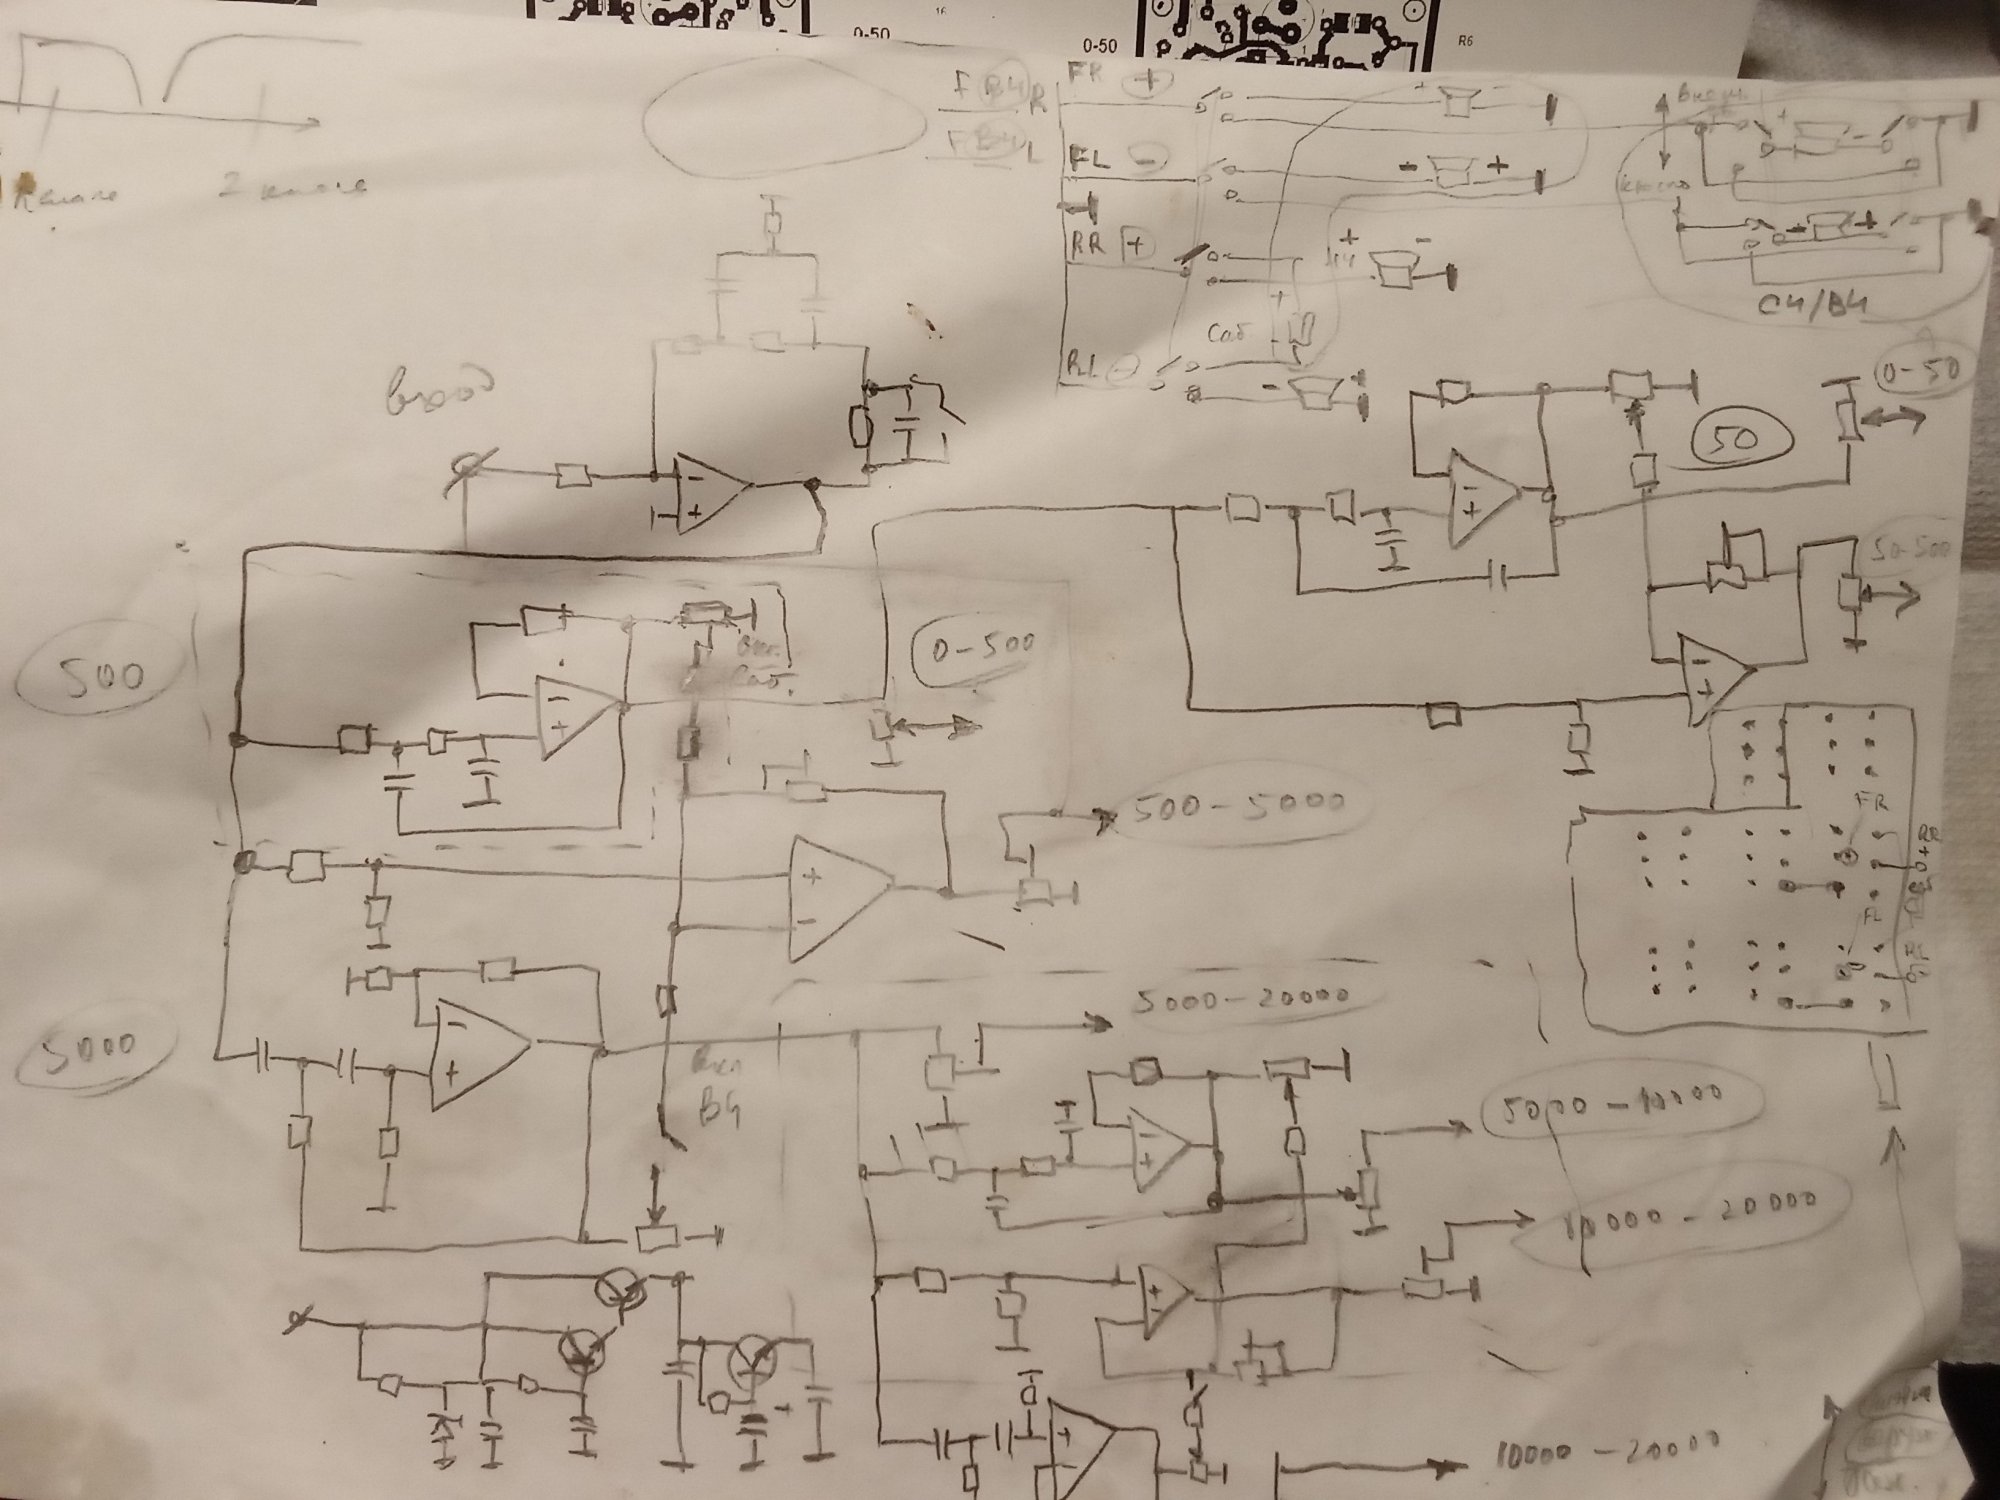 0-50
16
0-50
R6
2 канала
F ВЧ R
F ВЧ L
FR +
FL -
RR +
RL -
Саб
СЧ/ВЧ
вход
50
0-50
50-500
500
Вкл.
Саб.
0-500
500-5000
FR
FL
5000
Вкл
ВЧ
5000-20000
5000-10000
10000-20000
10000-20000